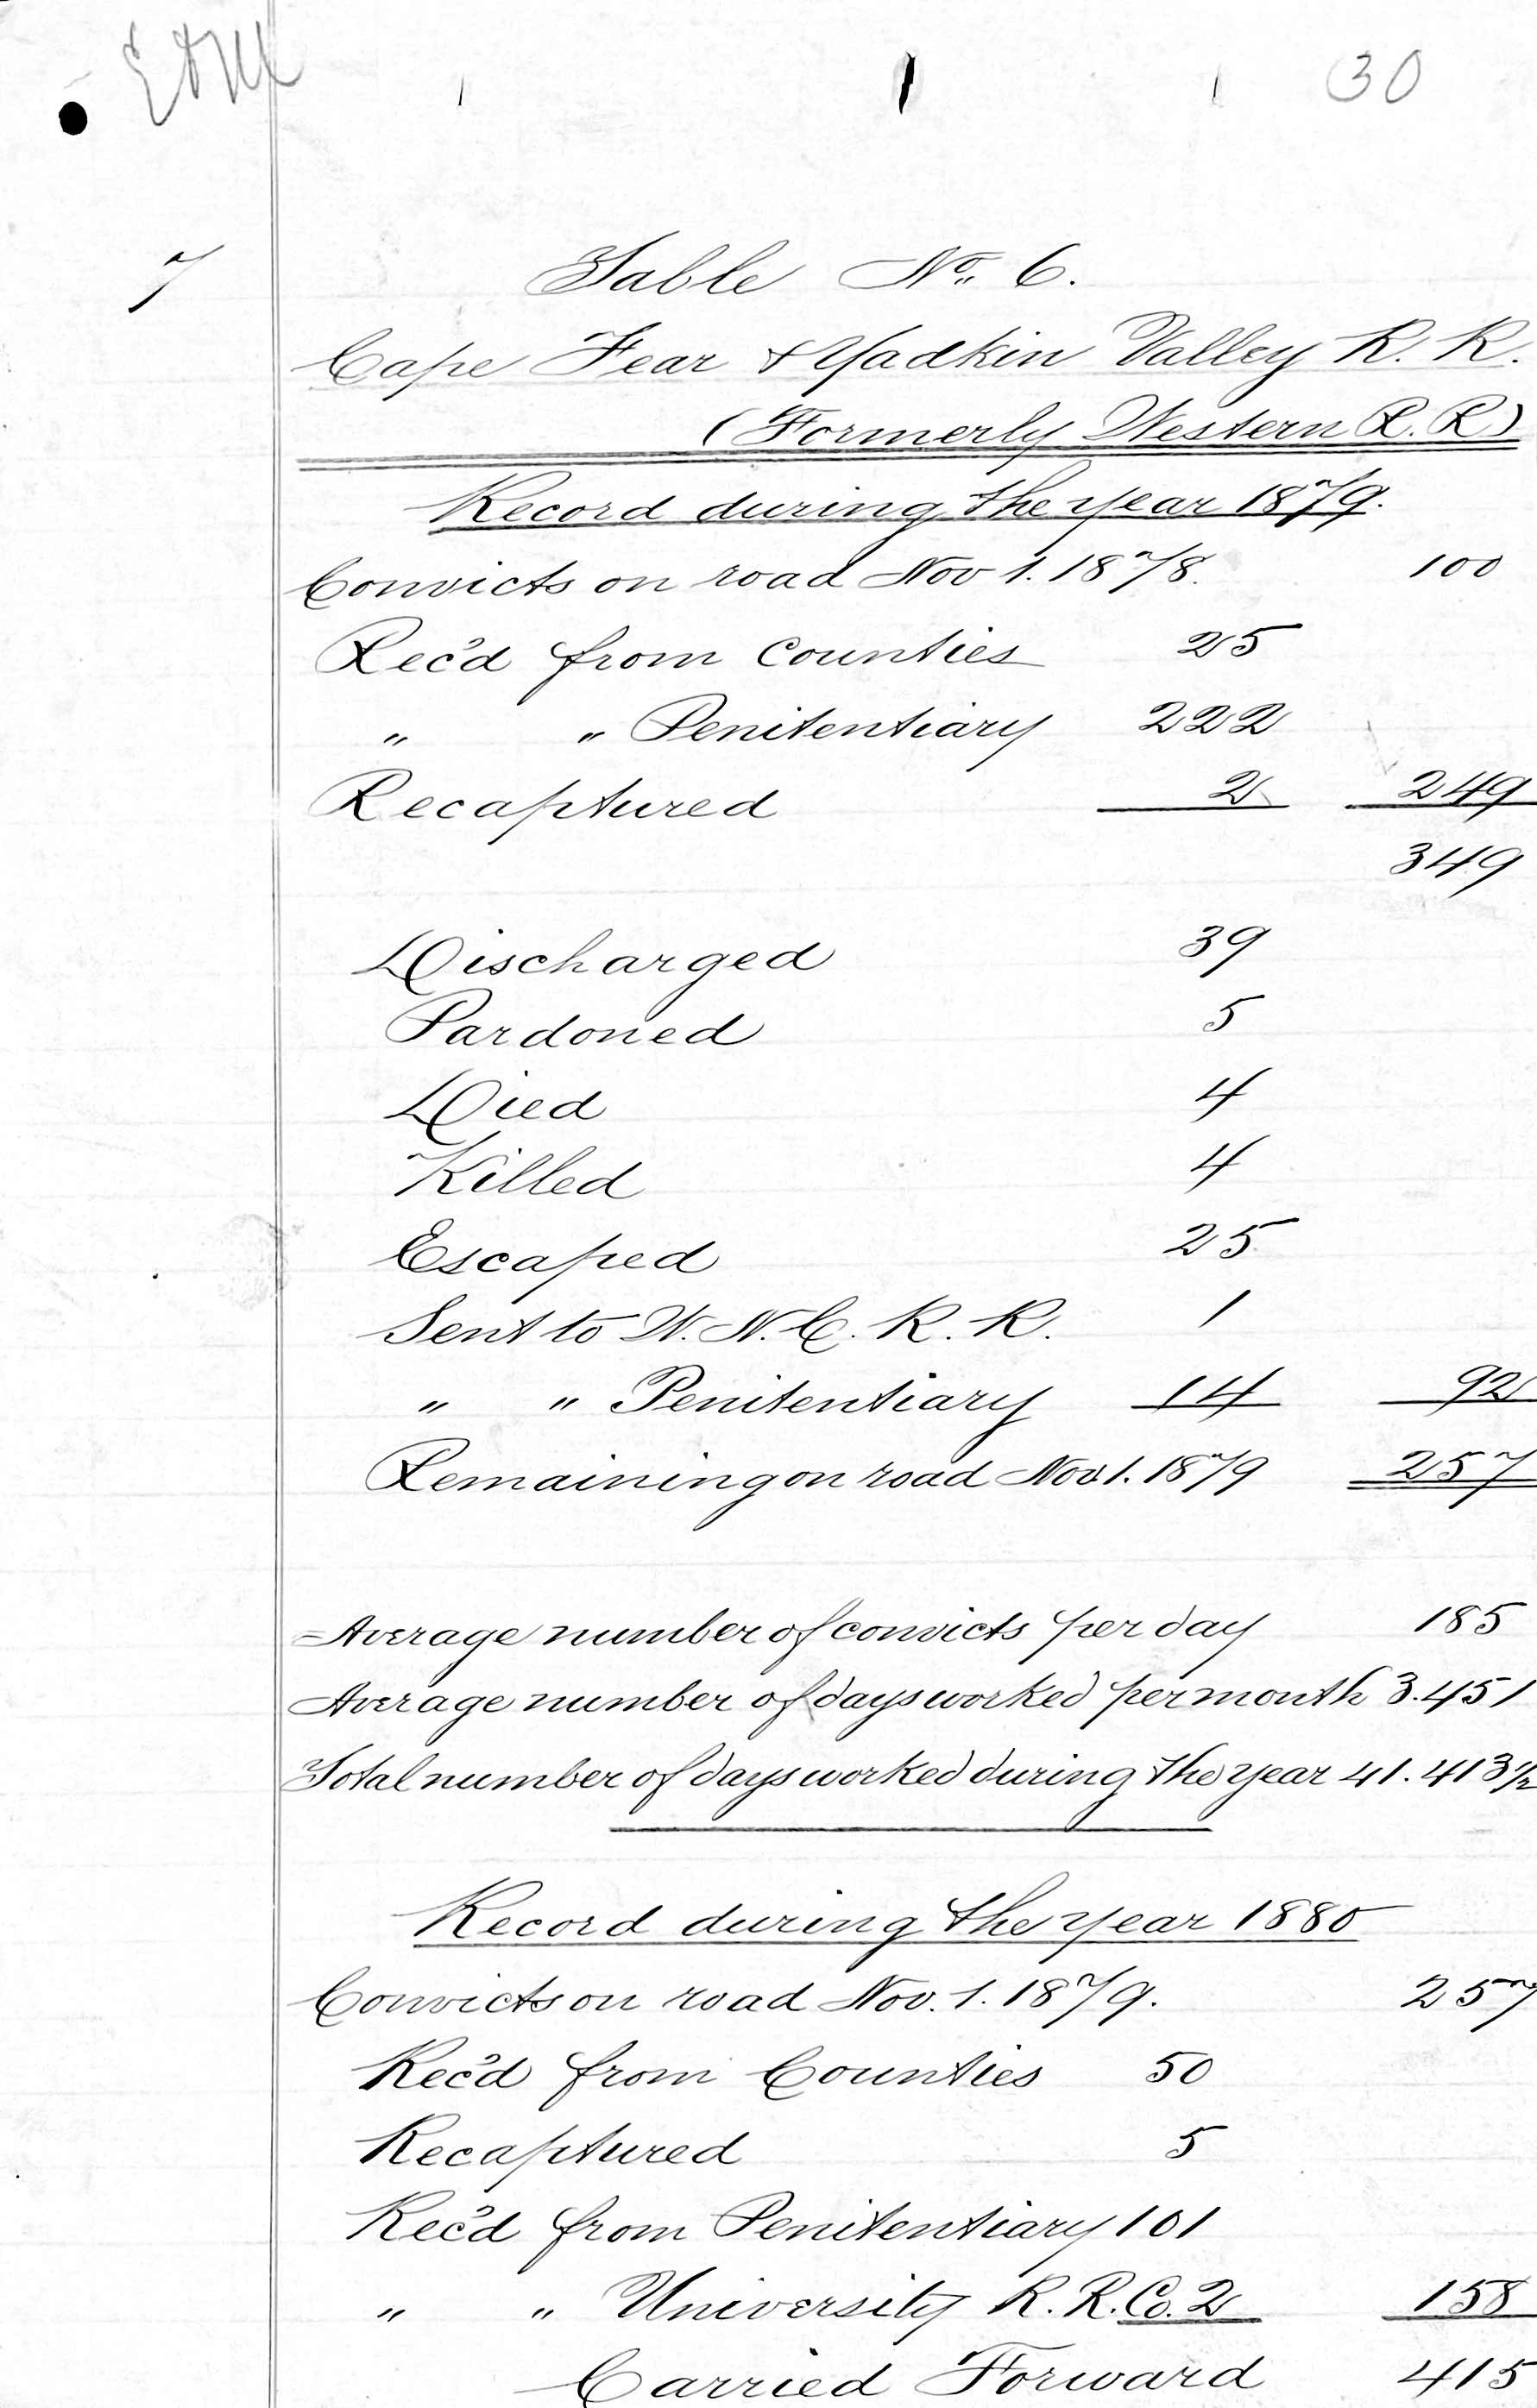 30
7
Table No. 6.
Cape Fear & Yadkin Valley R. R.
(Formerly Western R. R)
Record during the year 1879.
Convicts on road Nov 1. 1878. 100
Rec'd from Counties 25
" " Penitentiary 222
Recaptured 2 249
349
Discharged 39
Pardoned 5
Died 4
Killed 4
Escaped 25
Sent to W. N. C. R. R. 1
" " Penitentiary 14 92
Remaining on road Nov 1. 1879 257
Average number of convicts per day 185
Average number of days worked per month 3.451
Total number of days worked during the year 41.413½
Record during the year 1880
Convicts on road Nov. 1. 1879. 257
Rec'd from Counties 50
Recaptured 5
Rec'd from Penitentiary 101
" " University R. R. Co. 2 158
Carried Forward 415